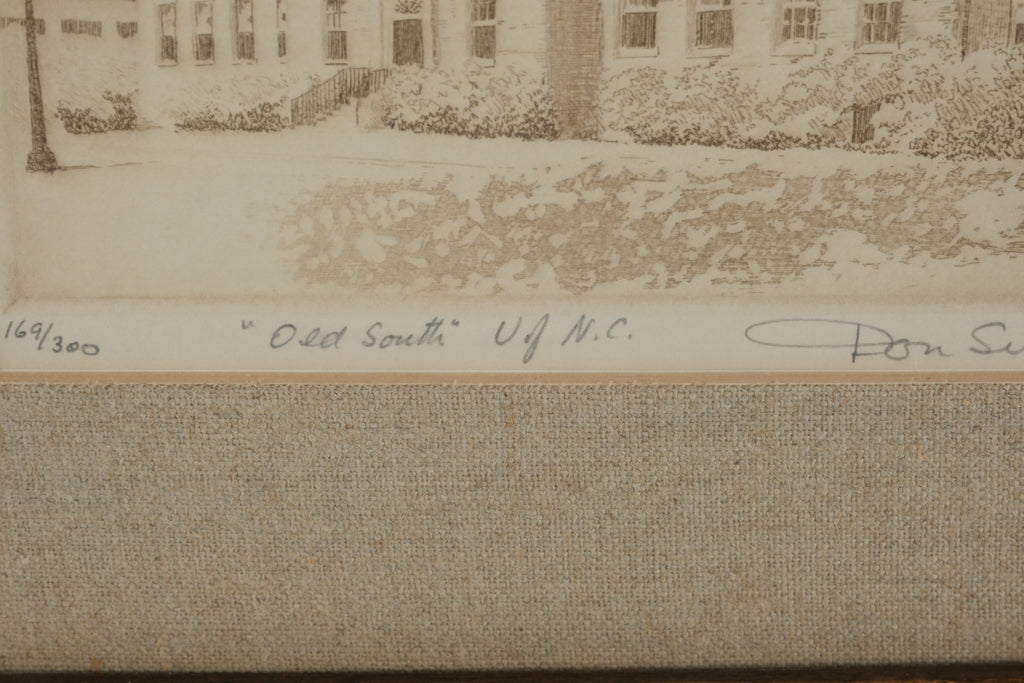 169/300 "Old South" U of N.C. Don